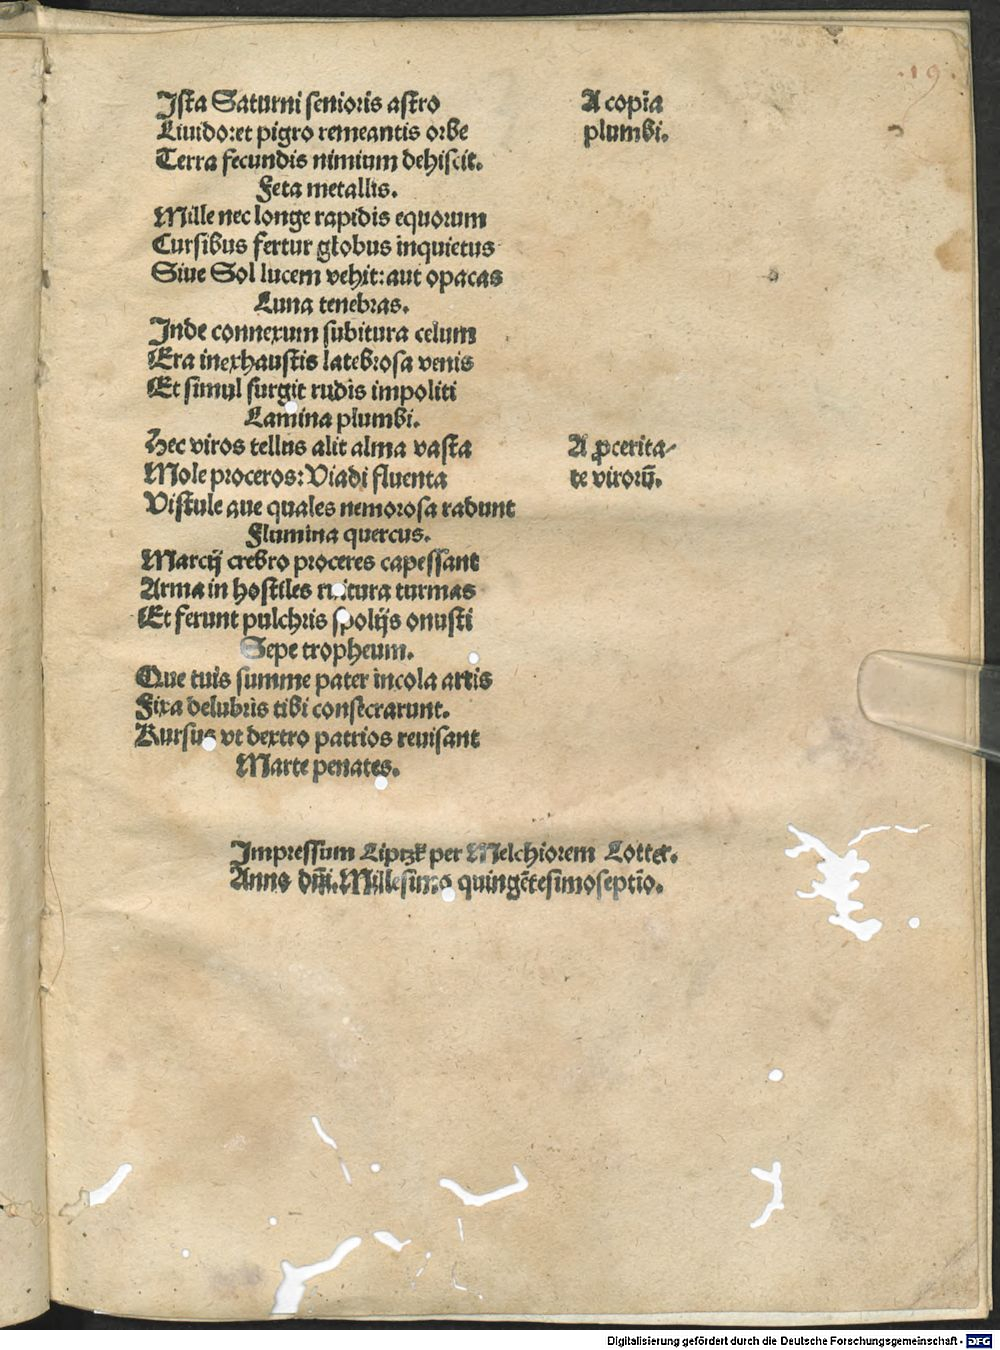 .19.
Ista Saturni senioris astro
Liuidoret pigro remeantis orbe
Terra fecundis nimium dehiscit.
Feta metallis.
Mille nec longe rapidis equorum
Cursibus fertur globus inquietus
Siue Sol lucem vehit: aut opacas
Luna tenebras.
Inde connexum subitura celum
Era inexhaustis latebrosa venis
Et simul surgit rudis impoliti
Lamina plumbi.
Hec viros tellus alit alma vasta
Mole proceros: Viadi fluenta
Vistule aue quales nemorosa radunt
Flumina quercus.
Marcij crebro proceres capessant
Arma in hostiles ruitura turmas
Et ferunt pulchris spolijs onusti
Sepe tropheum.
Que tuis summe pater incola artis
Fixa delubris tibi consecrarunt.
Rursus vt dextro patrios reuisant
Marte penates.
A copia
plumbi.
A ꝓcerita-
te virorū.
Impressum Liptzk per Melchiorem Lotter.
Anno dñi. Millesimo quingētesimoseptio.
Digitalisierung gefördert durch die Deutsche Forschungsgemeinschaft - DFG